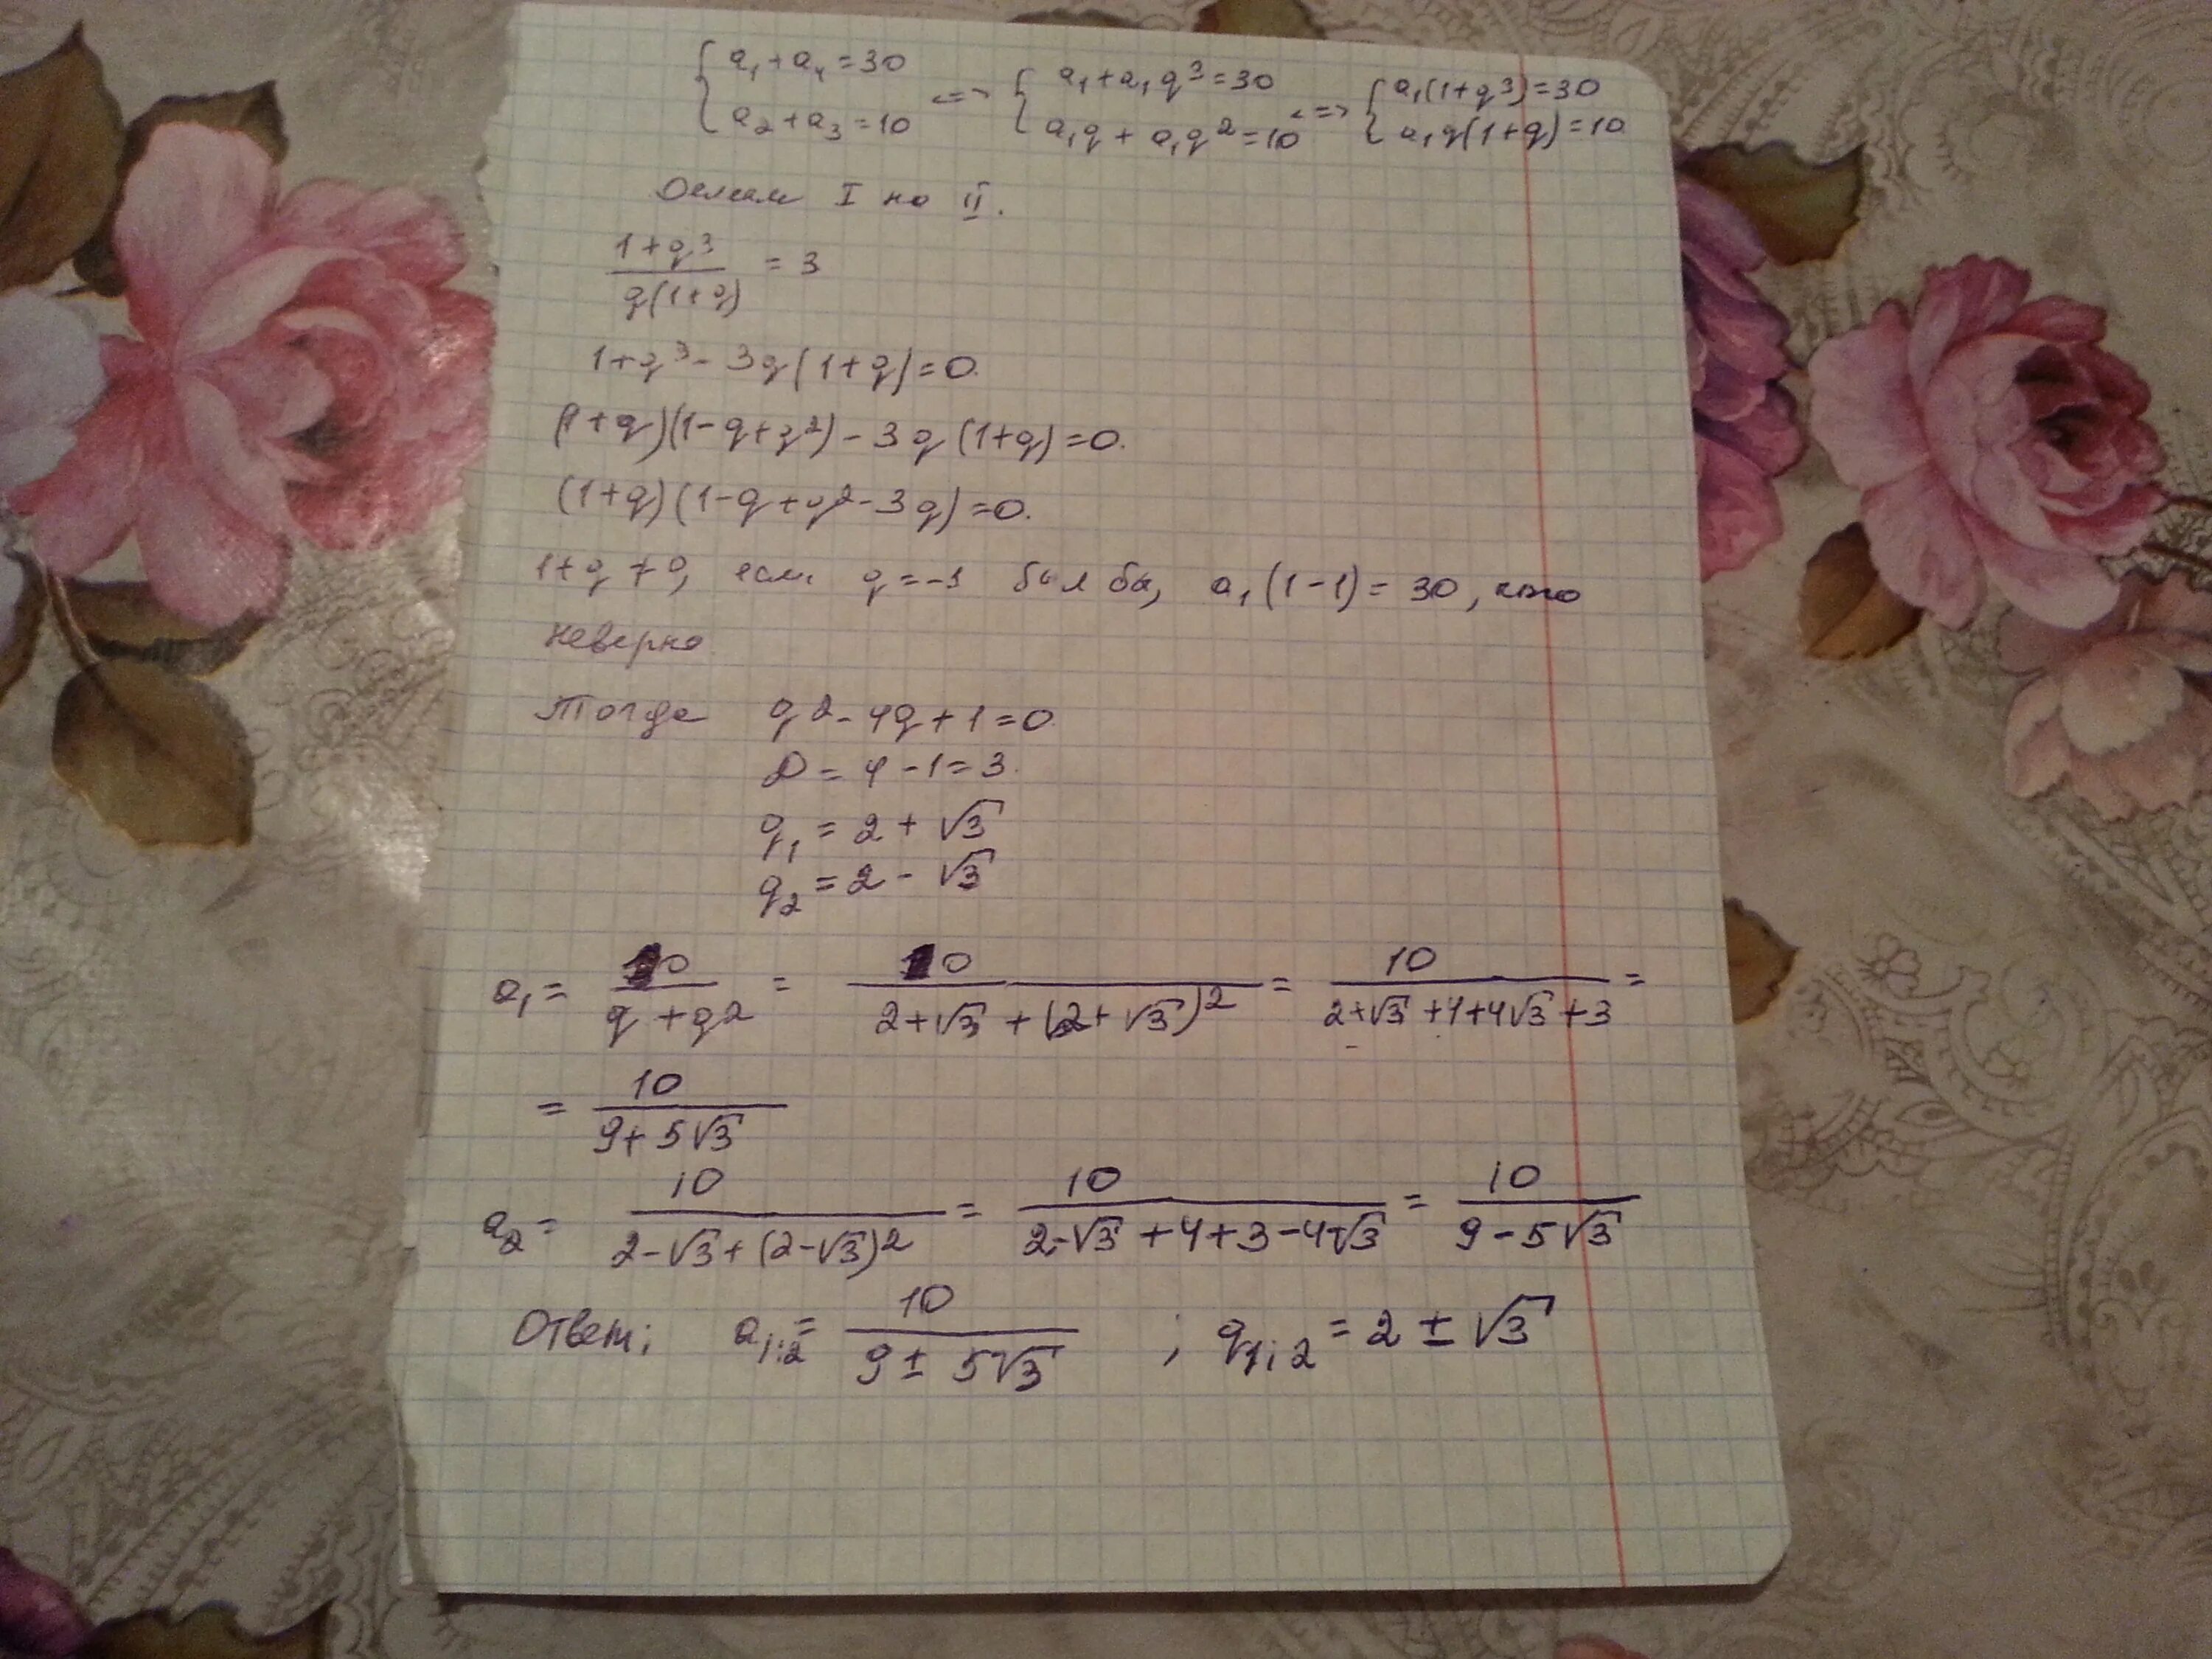 { a₁ + a₄ = 30
a₂ + a₃ = 10 <=> { a₁ + a₁q³ = 30
a₁q + a₁q² = 10 <=> { a₁(1+q³) = 30
a₁q(1+q) = 10
Делим I на II.
(1+q³)/(q(1+q)) = 3
1+q³ - 3q(1+q) = 0.
(1+q)(1-q+q²) - 3q(1+q) = 0.
(1+q)(1-q+q²-3q) = 0.
1+q ≠ 0, если q = -1 был бы, a₁(1-1) = 30, что
неверно
Тогда q² - 4q + 1 = 0.
D = 4 - 1 = 3.
q₁ = 2 + √3
q₂ = 2 - √3
a₁ = 10/(q + q²) = 10/(2+√3 + (2+√3)²) = 10/(2+√3+4+4√3+3) =
= 10/(9+5√3)
a₂ = 10/(2-√3+(2-√3)²) = 10/(2-√3+4+3-4√3) = 10/(9-5√3)
Ответ: a₁;₂ = 10/(9±5√3) ; q₁;₂ = 2 ± √3